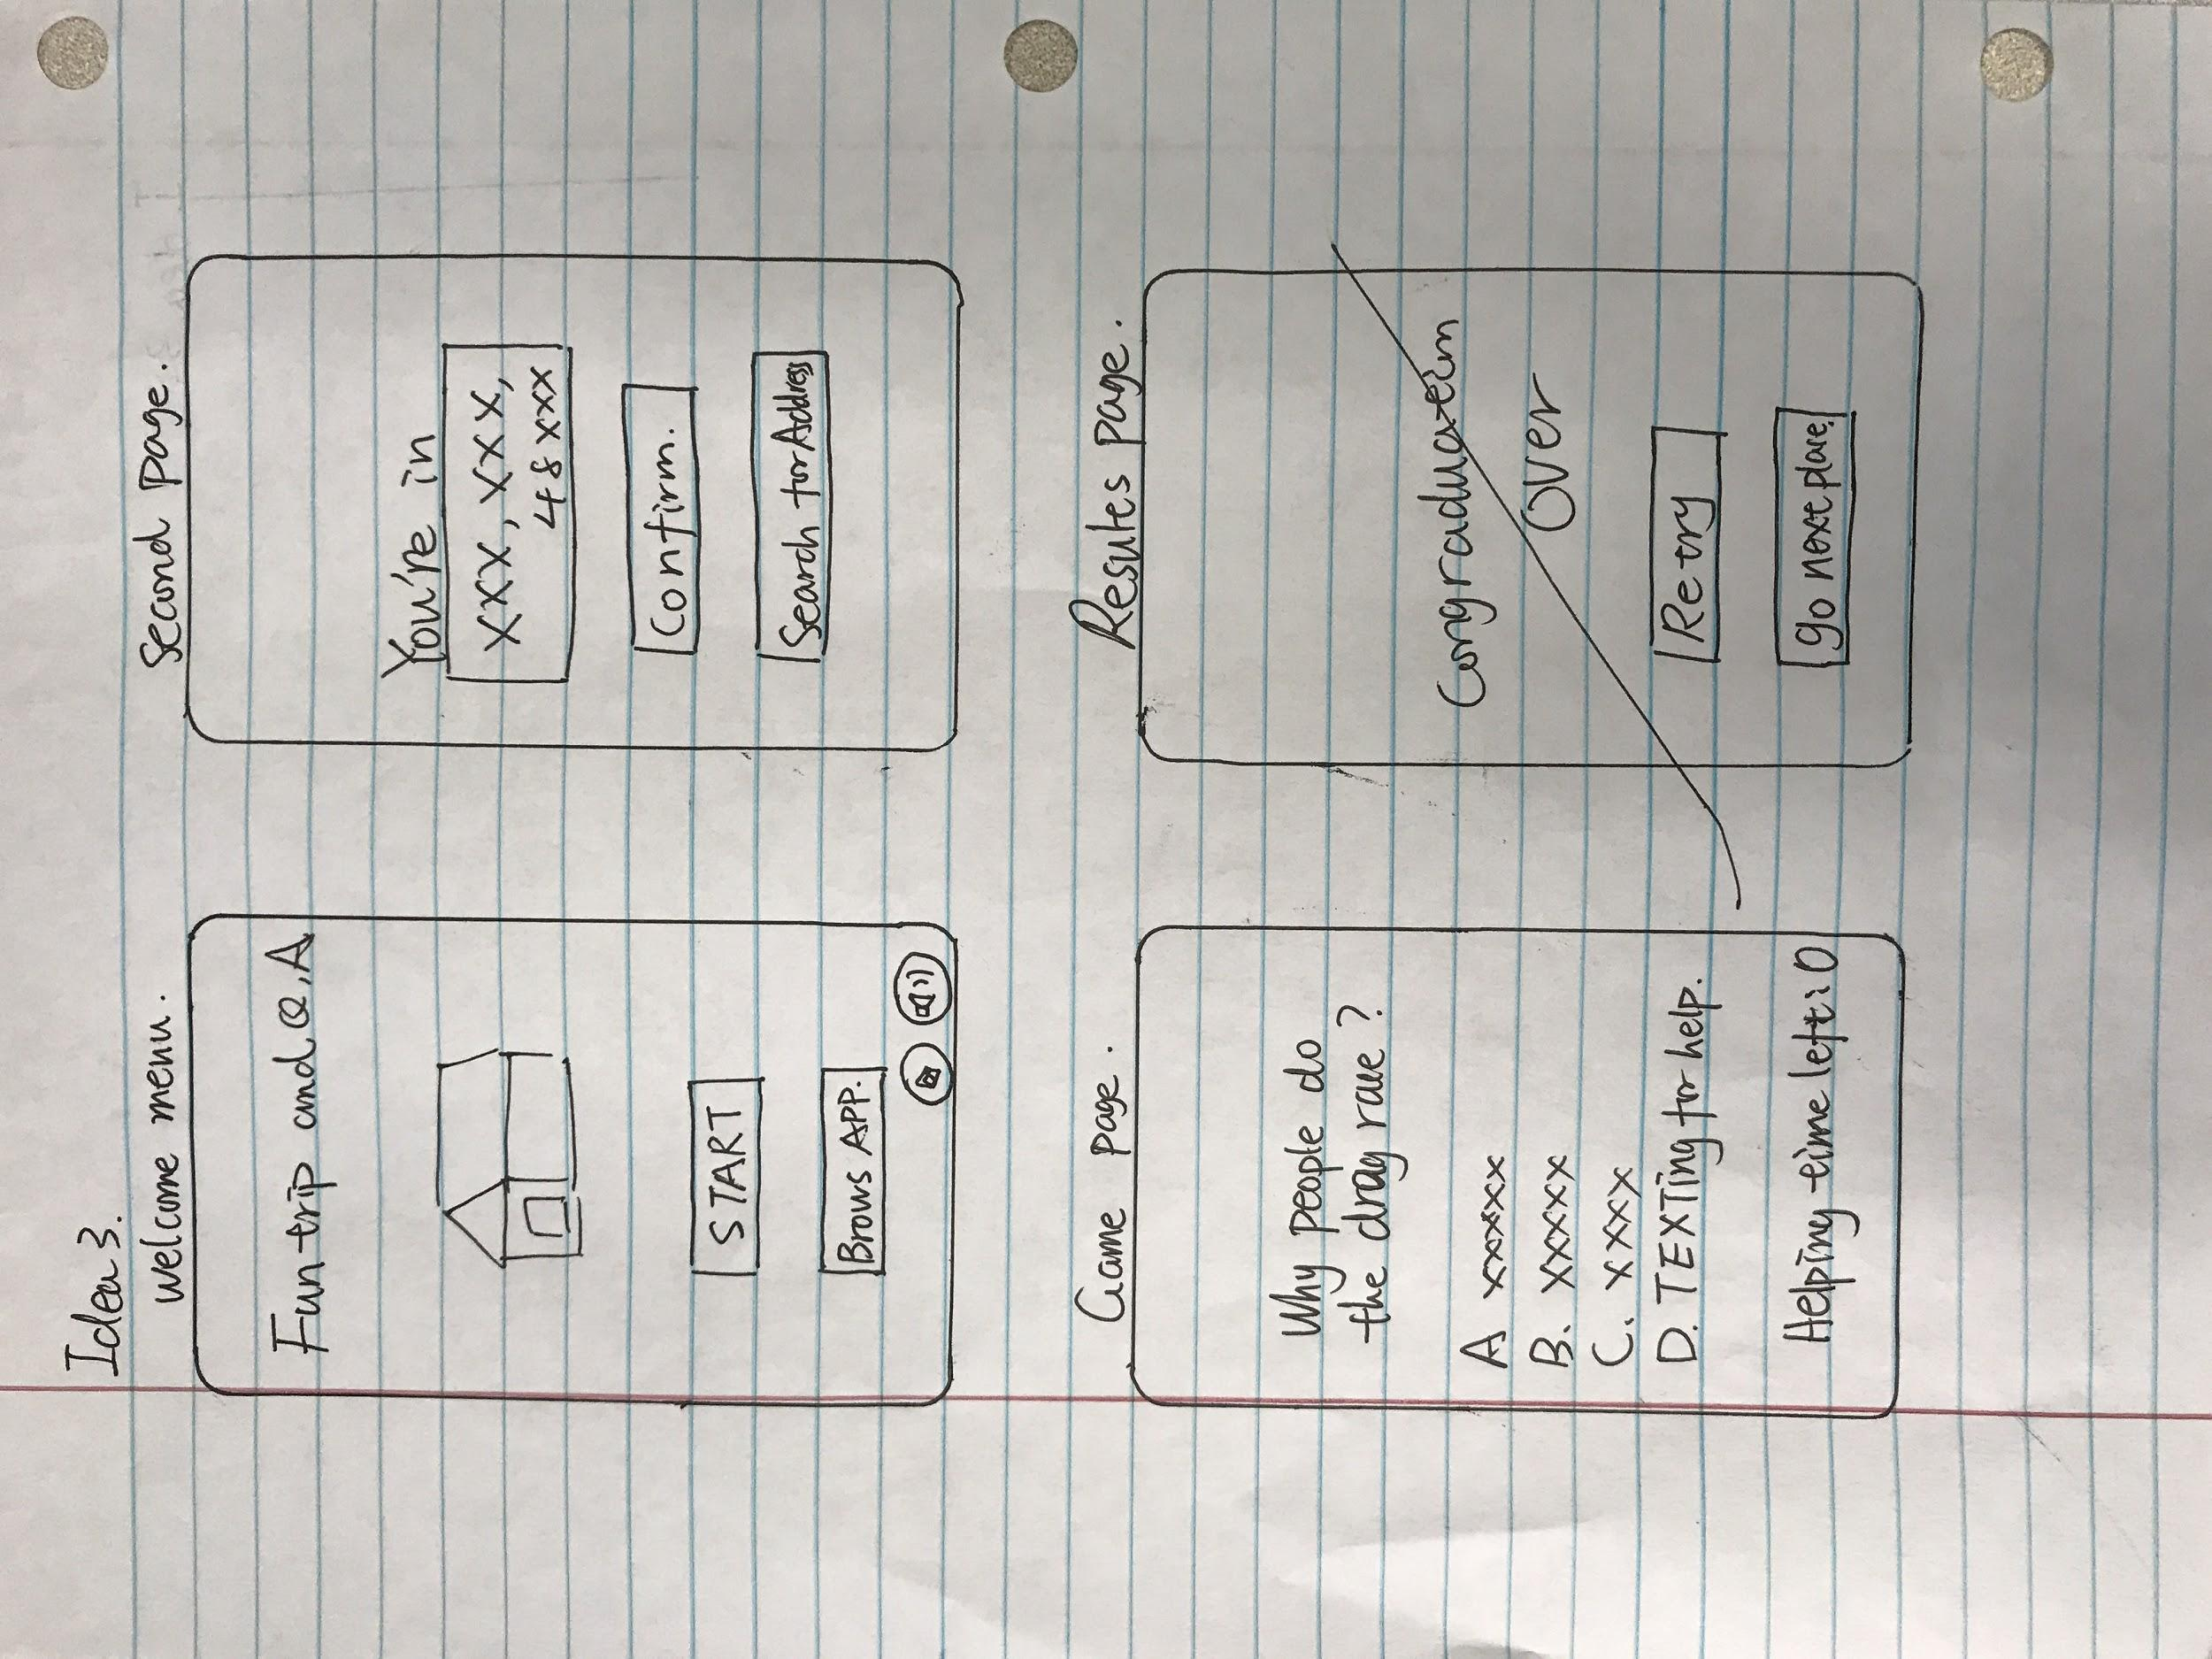 Idea 3.
welcome menu.
Fun trip and Q,A
START
Brows APP.
Second page.
You're in
XXX, XXX, XXX,
48XXX
Confirm.
Search for Address
Game page.
Why people do
the drag race?
A XXXXX
B. XXXXX
C. XXXX
D. TEXTing for help.
Helping time left: 0
Resultes page.
Congraduateim
Over
Retry
go next place.